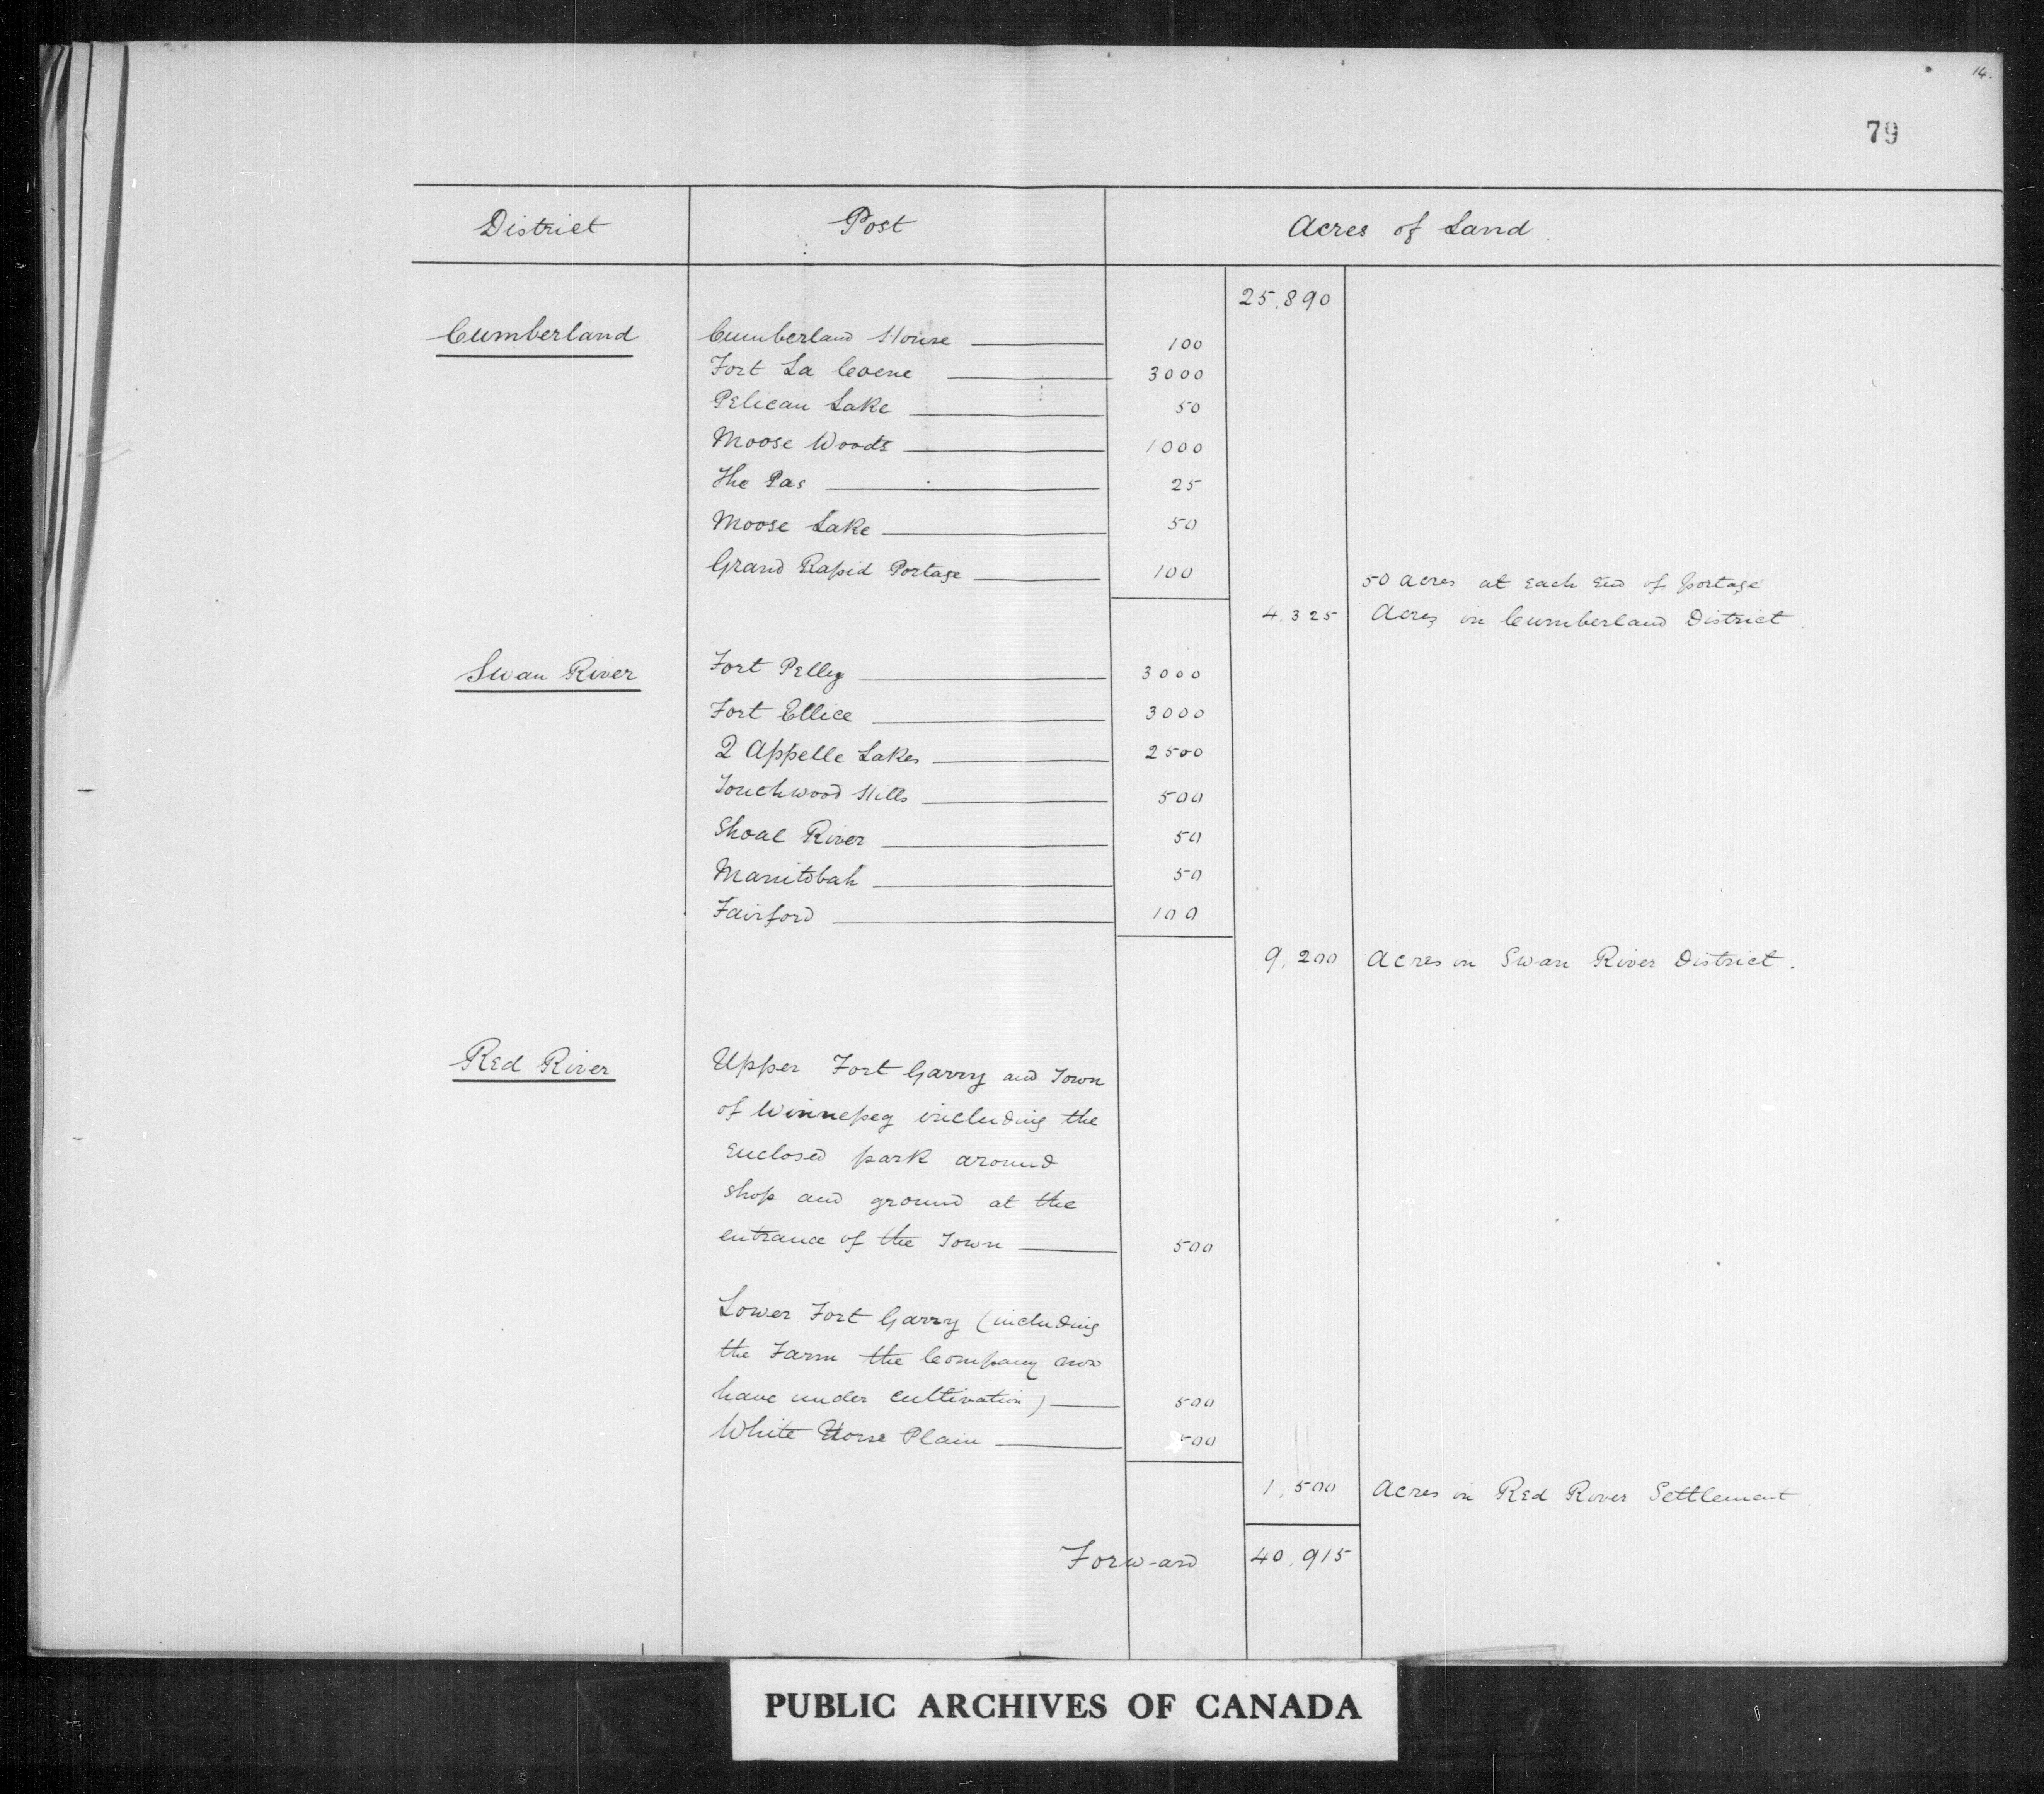 14.
79
District Post Acres of Land
25,890
Cumberland Cumberland House 100
Fort La Corne 3000
Pelican Lake 50
Moose Woods 1000
The Pas 25
Moose Lake 50
Grand Rapid Portage 100 50 acres at each end of portage
4,325 Acres in Cumberland District
Swan River Fort Pelly 3000
Fort Ellice 3000
Q Appelle Lakes 2500
Touchwood Hills 500
Shoal River 50
Manitobah 50
Fairford 100
9,200 Acres in Swan River District.
Red River Upper Fort Garry and Town
of Winnepeg including the
enclosed park around
shop and ground at the
entrance of the Town 500
Lower Fort Garry (including
the Farm the Company now
have under cultivation) 500
White Horse Plain 500
1,500 Acres in Red River Settlement
Forward 40,915
PUBLIC ARCHIVES OF CANADA